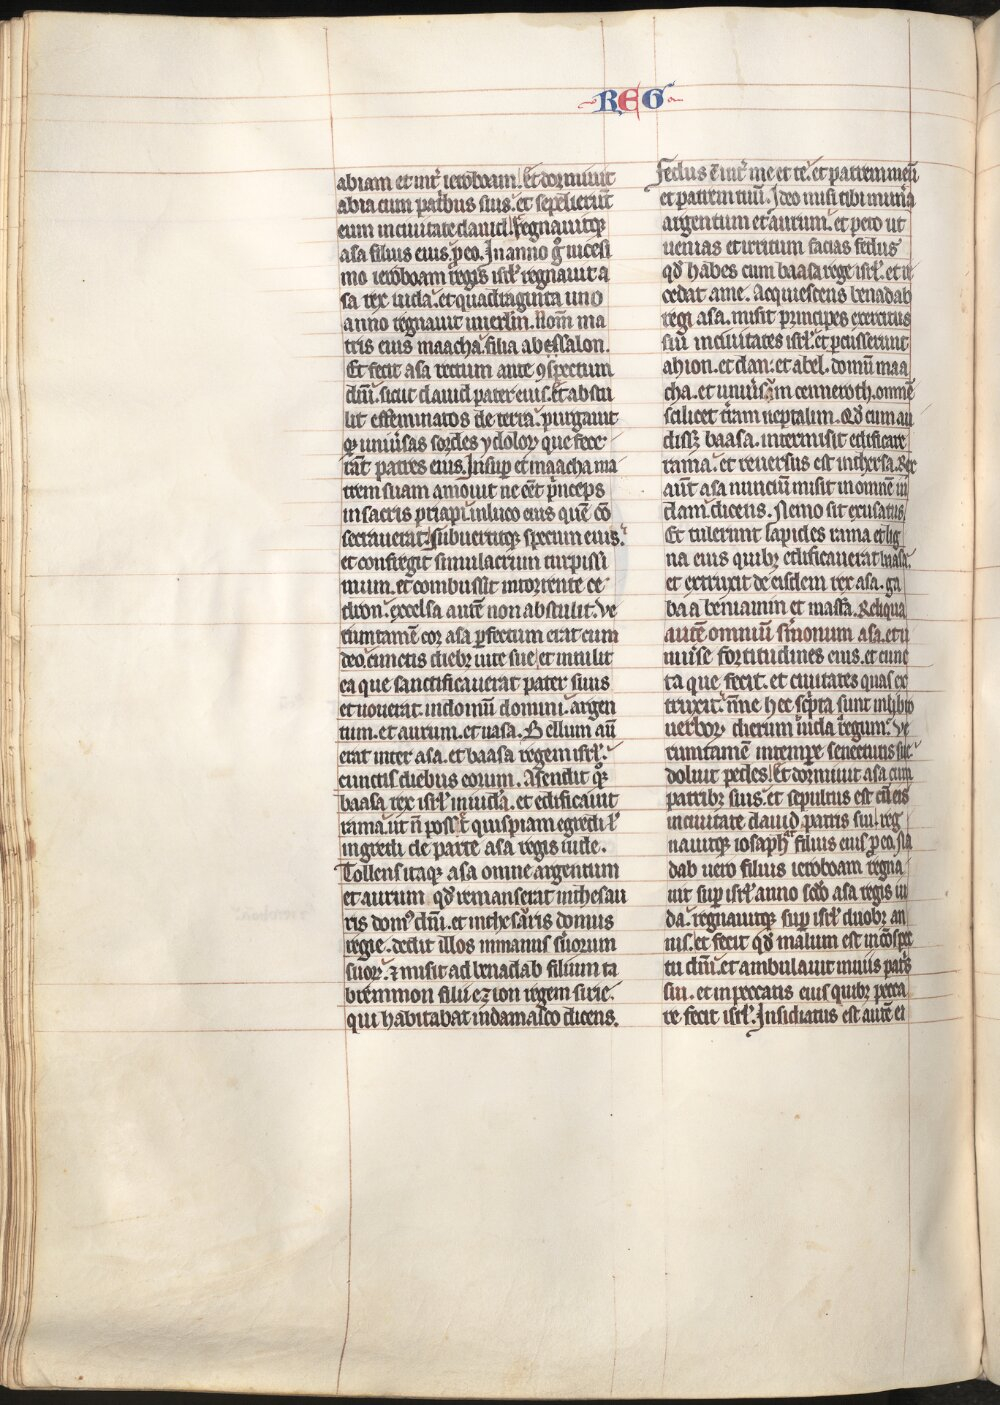 REG
abiam et int̾ ieroboam. Et dormiuit
abia cum patribus suis. et sepelierūt
eum in ciuitate dauid. Regnauitqꝫ
asa filius eius ꝓ eo. In anno g̊ uicesi
mo ieroboam regis isrl̾ regnauit a
sa rex iuda. et quadraginta uno
anno regnauit in ierl̾m. Nom̄ ma
tris eius maacha filia abessalon.
Et fecit asa rectum ante ꝯspectum
dn̄i. sicut dauid pater eius. Et abstu
lit effeminatos de terra. purgauit
qꝫ uniu̾sas sordes ydoloꝝ que fece
rāt patres eius. Insuꝑ et maacha ma
trem suam amouit ne eēt p̾nceps
in sacris priapi. in luco eius quē cō
secrauerat. subuertitqꝫ specum eius.
et confregit simulacrum turpissi
mum. et combussit in torrente ce
dron. excelsa autē non abstulit. Ve
rumtamē cor asa ꝑfectum erat cum
deo. cunctis diebꝫ uite sue. et intulit
ea que sanctificauerat pater suus
et uouerat. in domū domini. argen
tum. et aurum. et uasa. Bellum aū
erat inter asa. et baasa regem isrl̾.
cunctis diebus eorum. Asendit qꝫ
baasa rex isrl̾ in iudā. et edificauit
rama. ut n̄ poss;t quispiam egredi ul̾
ingredi de parte asa regis iude.
Tollens itaqꝫ asa omne argentum
et aurum qd̾ remanserat in thesau
ris domꝰ dn̄i. et in thesauris domus
regie. dedit illos in manus su̾orum
suoꝝ. ⁊ misit ad benadab filium ta
bremmon filii ezion regem sirie.
qui habitabat in damasco dicens.
Fedus ē int̾ me et te. et patrem meū
et patrem tuū. Ideo misi tibi mun̾a
argentum et aurum. et peto ut
uenias et irritum facias fedus
qd̾ habes cum baasa rege isrl̾. et re
cedat a me. Acquiescens benadab
regi asa. misit principes exercitus
sui in ciuitates isrl̾. et percusserunt
ahion. et dan. et abel. domū maa
cha. et uniu̾sam cenneroth. omnē
scilicet t̾ram neptalim. Qd̾ cum au
diss; baasa. intermisit edificare
rama. et reuersus est in thersa. Rex
aūt asa nunciū misit in omnem iu
dam dicens. Nemo sit excusatus.
Et tulerunt lapides rama et lig
na eius quibꝫ edificauerat baasa.
et extruxit de eisdem rex asa. ga
baa beniamin et masfa. Reliqua
autē omniū s̾monum asa. et u
niu̾se fortitudines eius. et cunc
ta que fecit. et ciuitates quas ex
truxit. n̄ne hec sc̾pta sunt in libro
uerboꝝ dierum iuda regum. Ve
rumtamē in tempore senectutis sue
doluit pedes. Et dormiuit asa cum
patribꝫ suis. et sepultus est cū eis
in ciuitate dauid patris sui. reg
nauitqꝫ iosaphat filius eius ꝓ eo. Na
dab uero filius ieroboam regna
uit suꝑ isrl̾ anno scd̾o asa regis iu
da. regnauitqꝫ suꝑ isrl̾ duobꝫ an
nis. et fecit qd̾ malum est in cōspec
tu dn̄i. et ambulauit in uiis pat̾s
sui. et in peccatis eius quibꝫ pecca
re fecit isrl̾. Insidiatus est autē ei